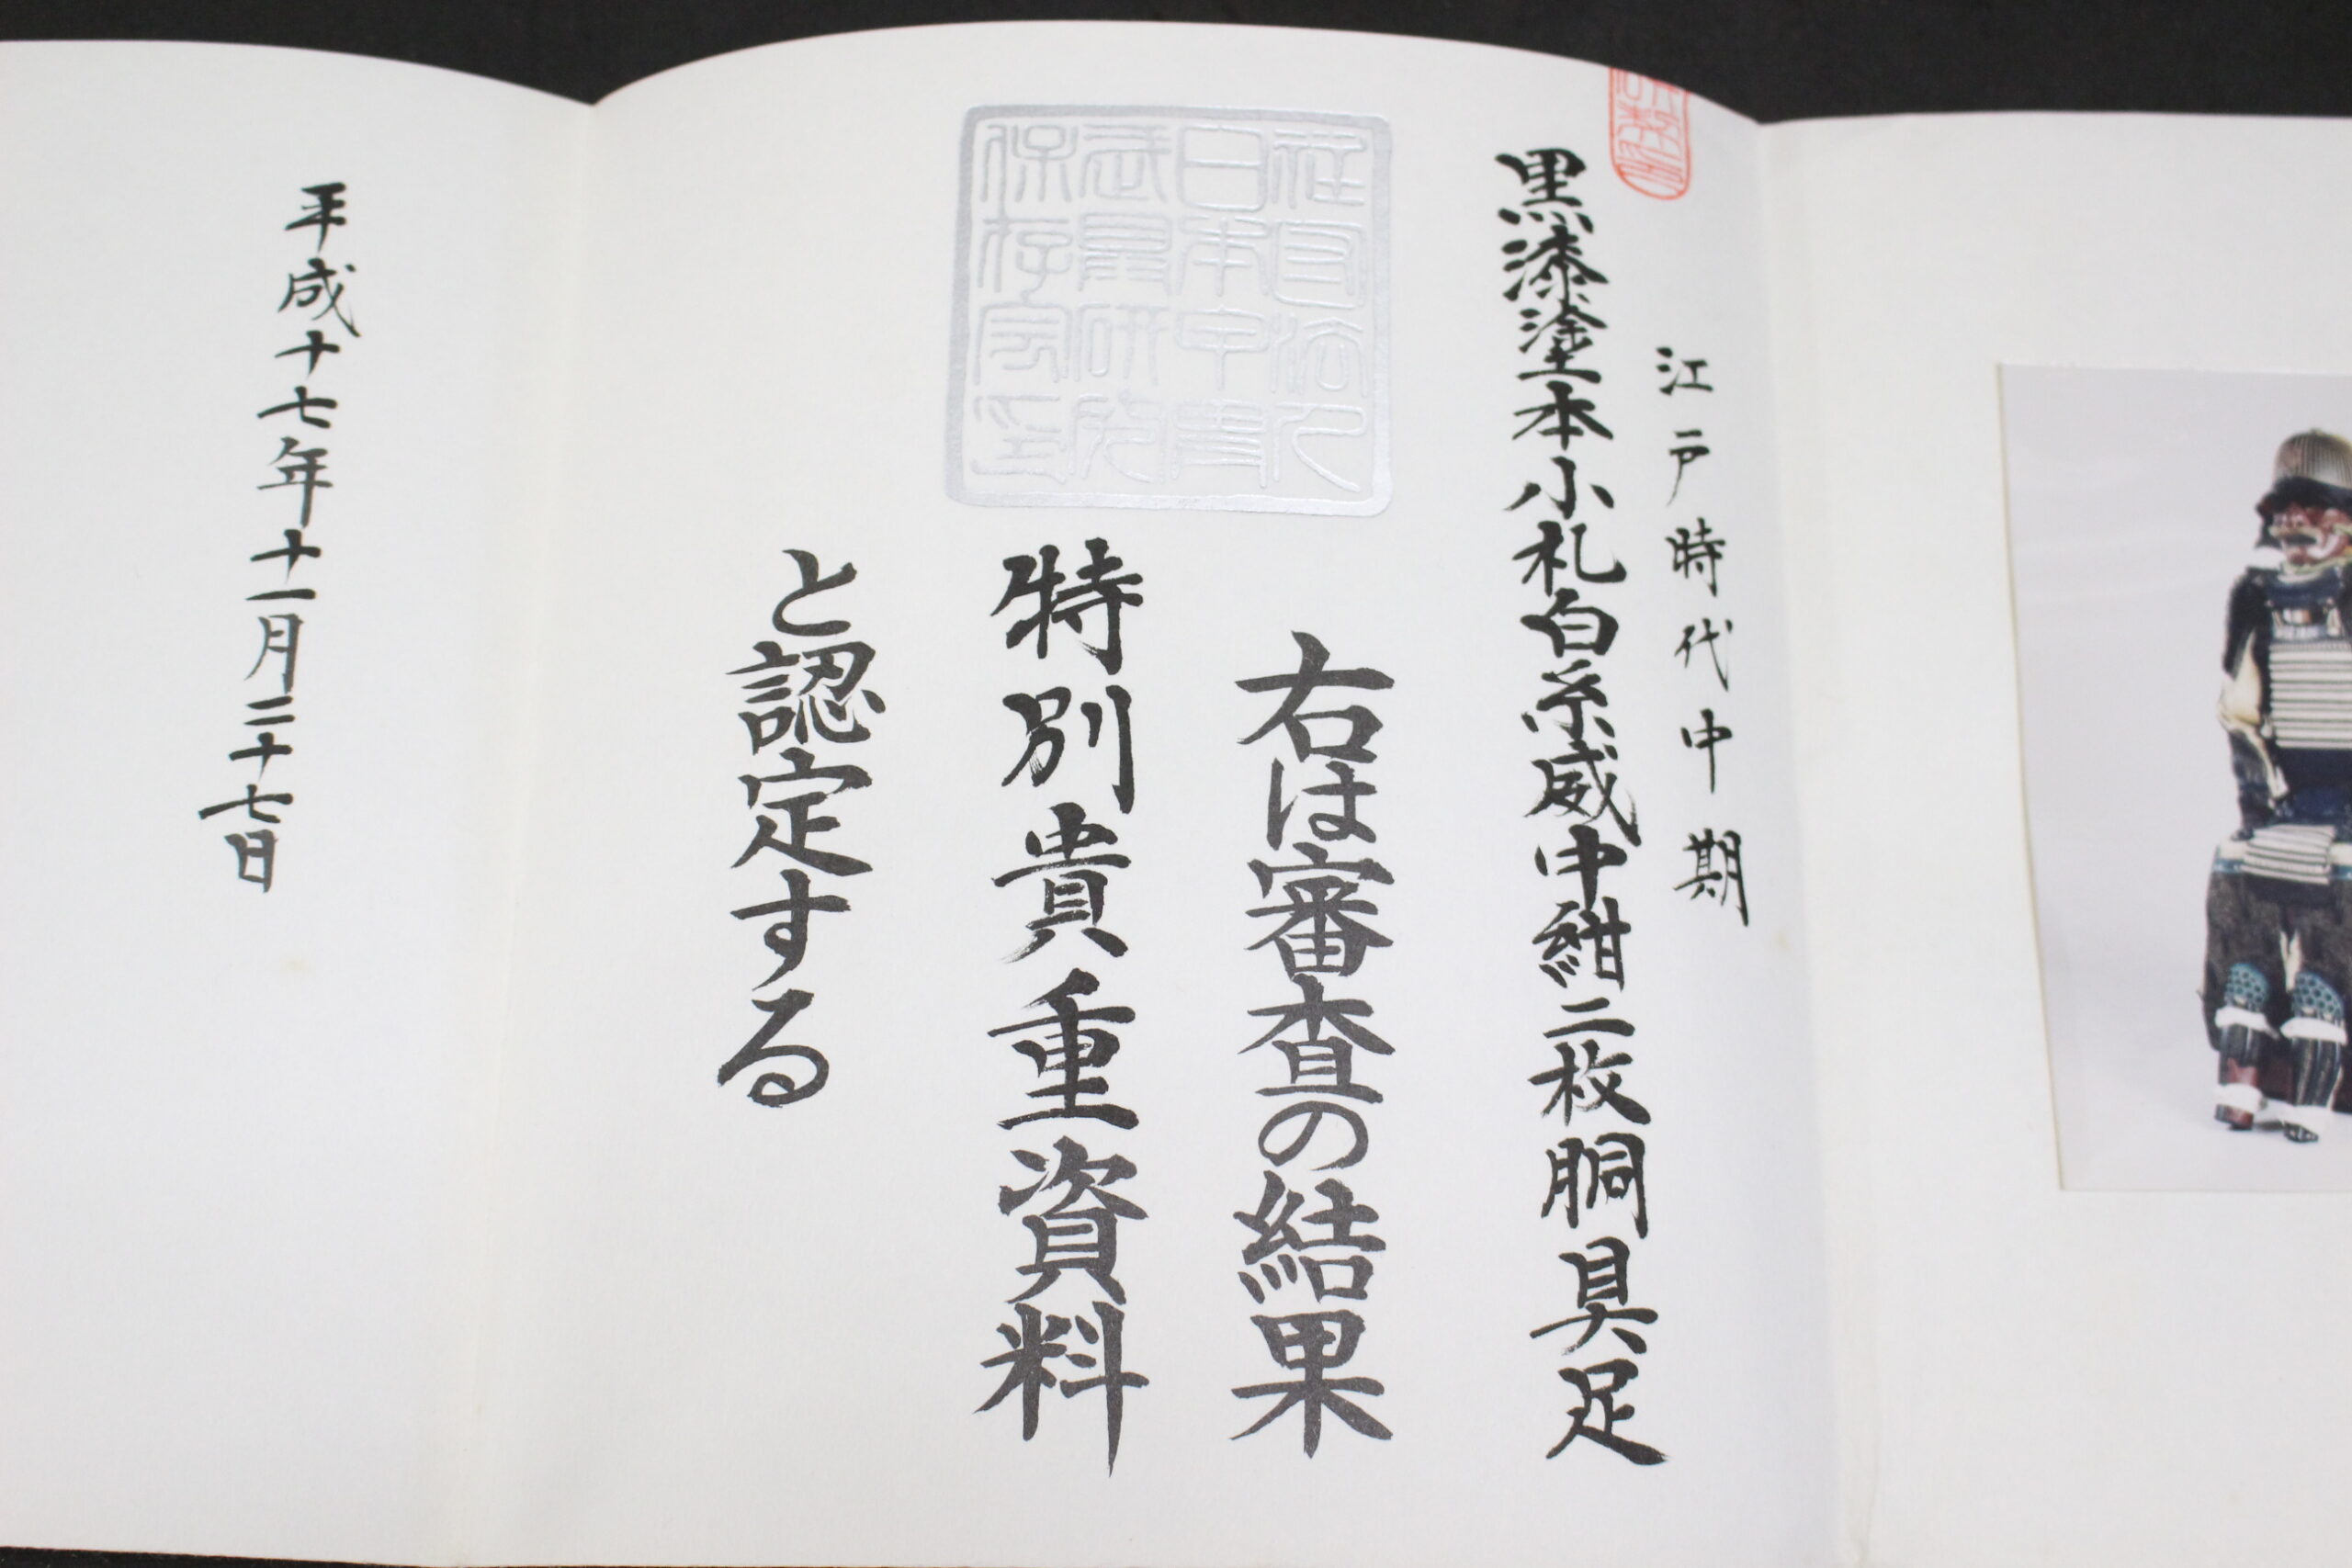 江戸時代中期
黒漆塗本小札白糸威中紺二枚胴具足
右は審査の結果
特別貴重資料
と認定する
社団法人
日本甲冑
武具研究
保存会印
平成十七年十一月二十七日